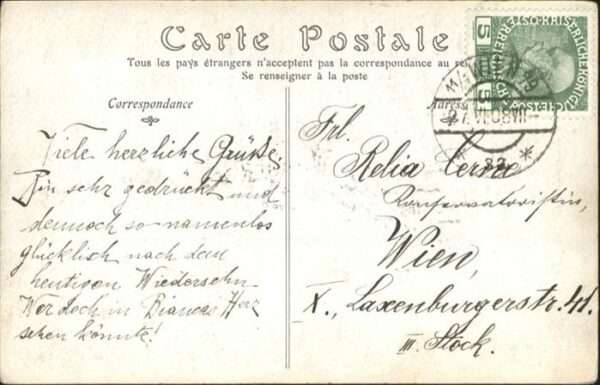 Carte Postale
Tous les pays étrangers n'acceptent pas la correspondance au
Se renseigner à la poste
Correspondance
Viele herzliche Grüsse,
Bin sehr gedrückt und
dennoch so namenlos
glücklich nach dem
heutigen Wiedersehn.
Wer doch in Biancas Herz
sehen könnte!
5
5
Frl.
Relia Cerne
Konservatoristin,
Wien,
X., Laxenburgerstr. 41.
III. Stock.